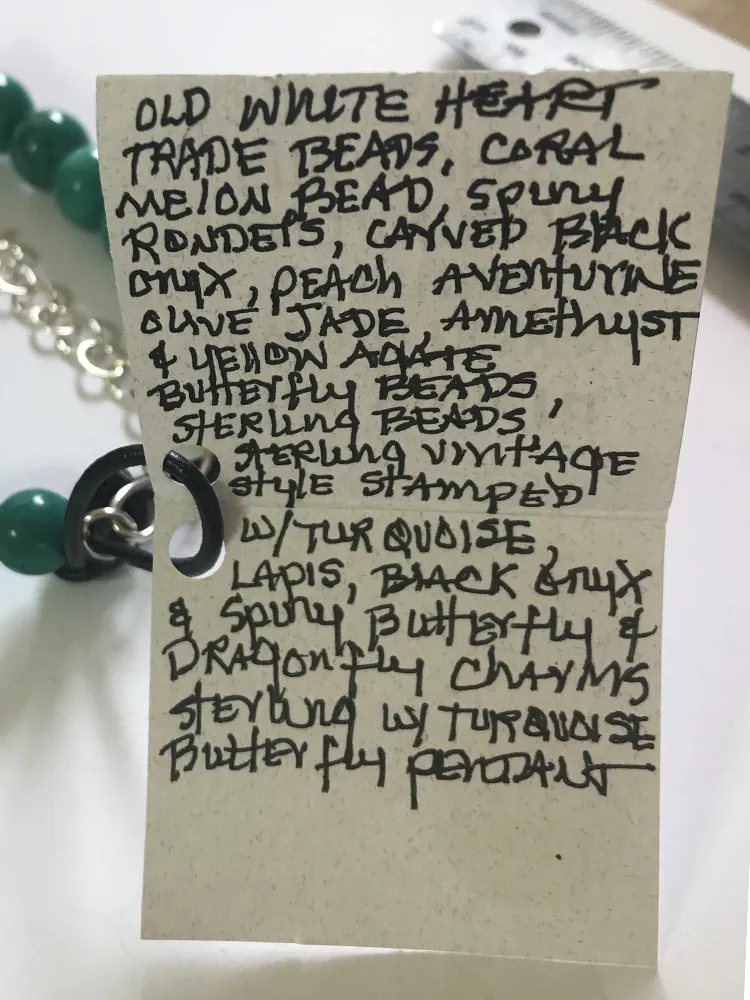 OLD WHITE HEART
TRADE BEADS, CORAL
MELON BEAD, SPINY
RONDELS, CARVED BLACK
ONYX, PEACH AVENTURINE
OLIVE JADE, AMETHYST
& YELLOW AGATE
BUTTERFLY BEADS,
STERLING BEADS,
STERLING VINTAGE
STYLE STAMPED
W/TURQUOISE,
LAPIS, BLACK ONYX
& SPINY BUTTERFLY &
DRAGONFLY CHARMS
STERLING W/ TURQUOISE
BUTTERFLY PENDANT